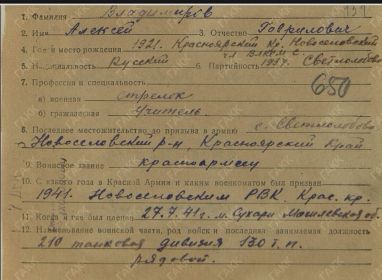 1. Фамилия Владимиров
2. Имя Алексей 3. Отчество Гаврилович
4. Год и место рождения 1921. Красноярский кр. Новоселовский
чл ВЛКСМ с
5. Национальность Русский 6. Партийность 1937. Светлолобово
7. Профессия и специальность 650
а) военная стрелок
б) гражданская Учитель.
8. Последнее местожительство до призыва в армию с. Светлолобово
Новоселовский р-н, Красноярский Край
9. Воинское звание красноармеец
10. С какого года в Красной Армии и каким военкоматом был призван
1941. Новоселовским РВК Крас. кр.
11. Когда и где был пленен 27.7.41г. м. Сухари Могилевская об.
12. Наименование воинской части, род войск и последняя занимаемая должность
210 танковая дивизия 130 т.п.
рядовой.